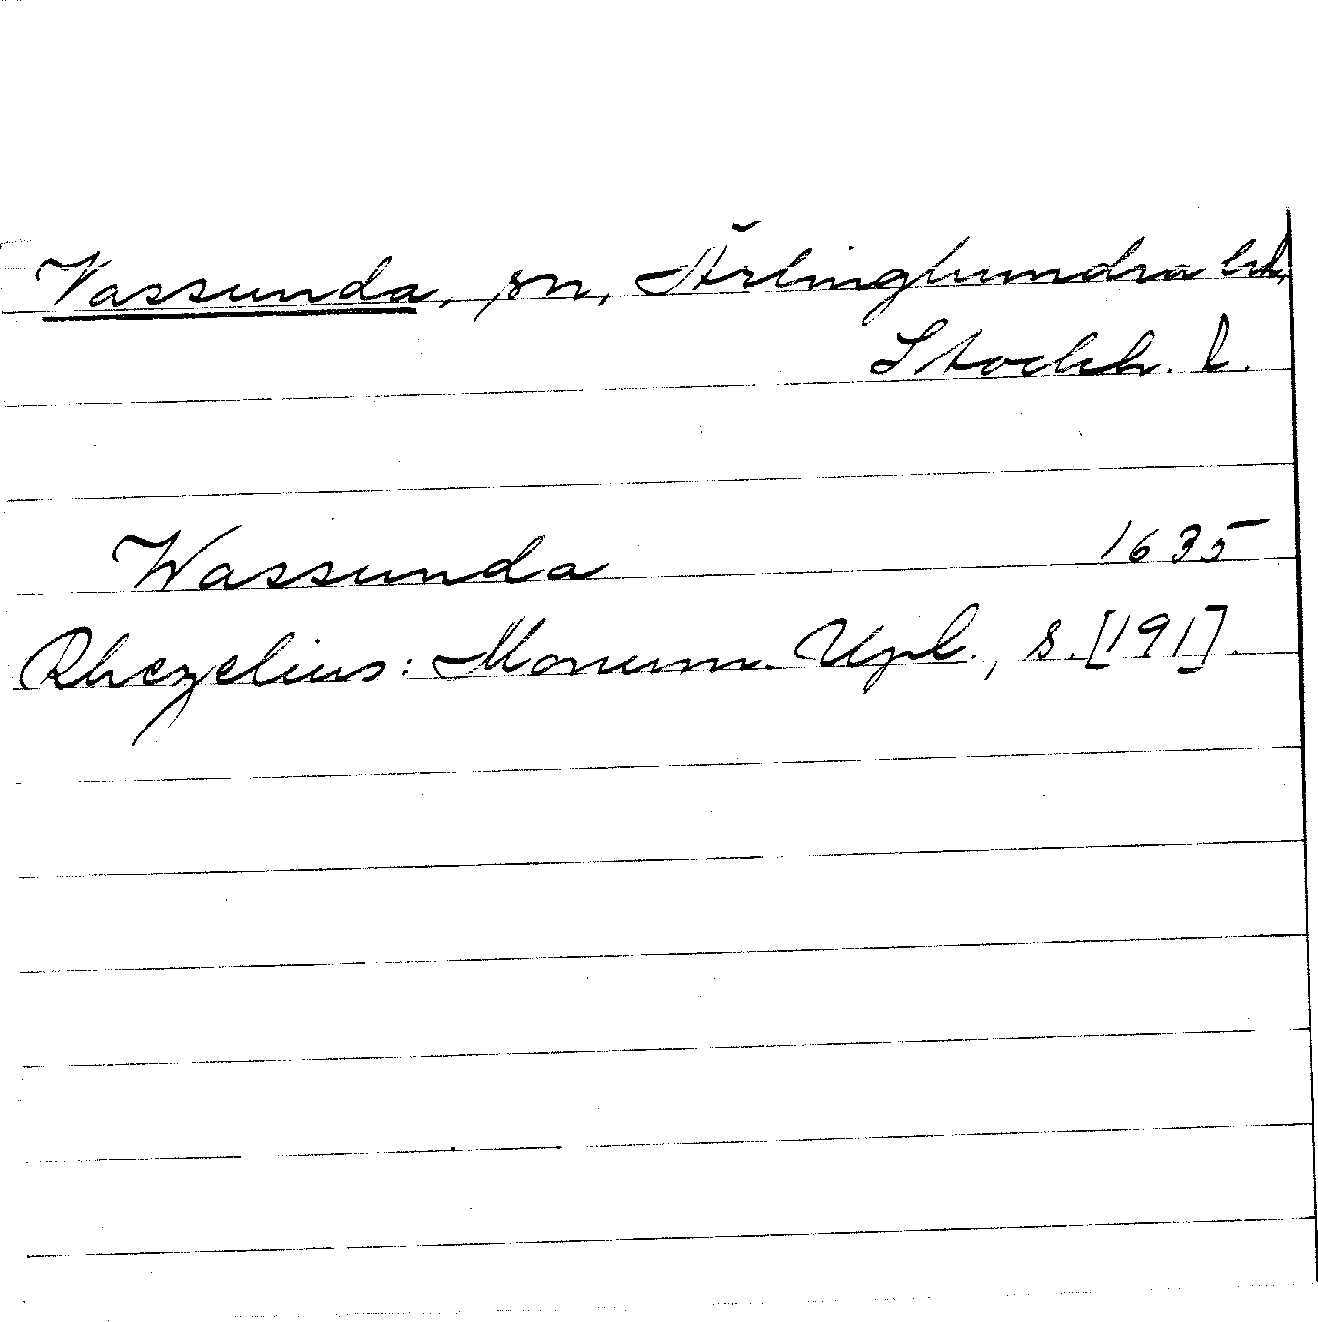 Vassunda, sn, Ärlinghundra hd,
Stockh. l.
Wassunda 1635
Rhezelius: Monum. Upl., s. [191].